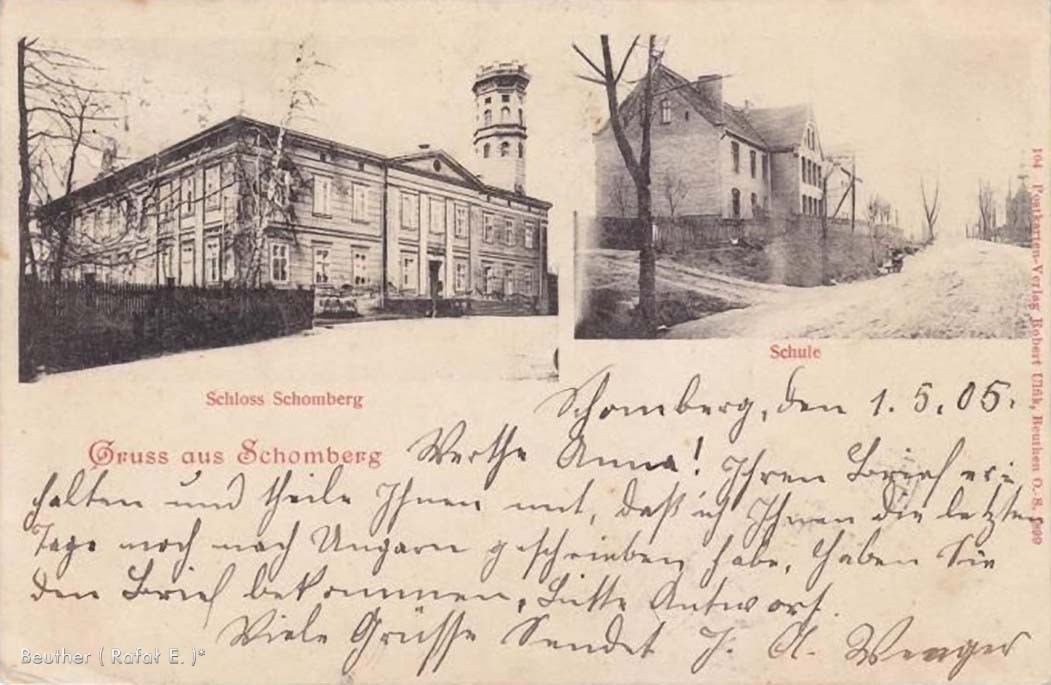 Schloss Schomberg
Schule
Gruss aus Schomberg
Schomberg, den 1.5.05.
Werthe Anna! Ihren Brief er-
halten und theile Ihnen mit, daß ich Ihnen die letzten
Tage noch nach Ungarn geschrieben habe, haben Sie
den Brief bekommen, Bitte Antwort.
Viele Grüsse Sendet J. A.
104 Postkarten-Verlag Robert Ulfik, Beuthen O.-S.
Beuther ( Rafał E. )*